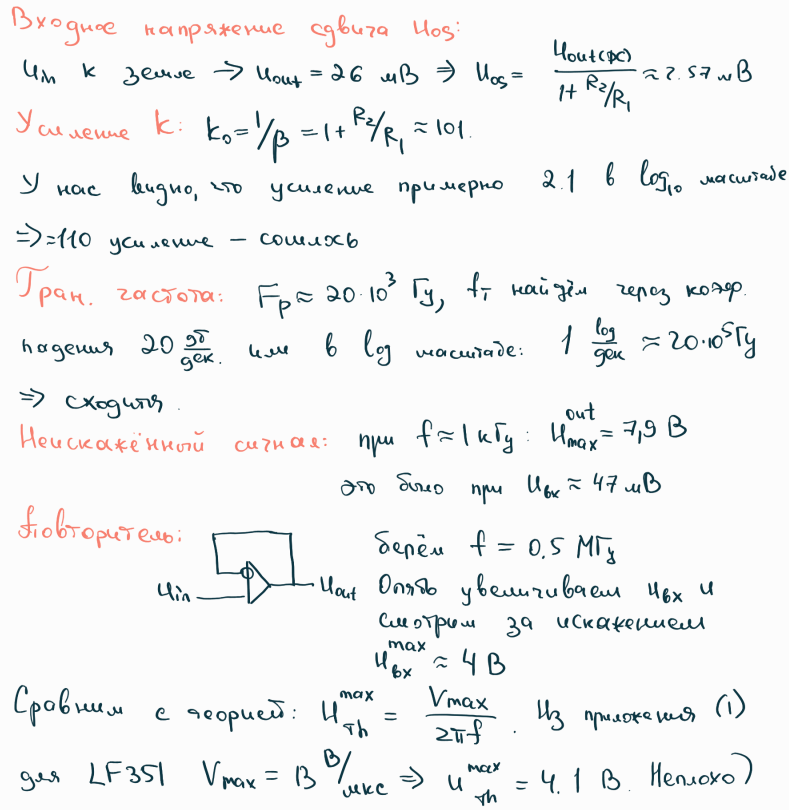 Входное напряжение сдвига U_os:
U_in к земле → U_out = 26 мВ ⇒ U_os = U_out(DC) / (1 + R₂/R₁) ≈ 2.57 мВ
Усиление K: K₀ = 1/β = 1 + R₂/R₁ ≈ 101.
У нас видно, что усиление примерно 2.1 в log₁₀ масштабе
⇒ ≈110 усиление – сошлось
Гран. частота: F_p ≈ 20·10³ Гц, f_T найдём через коэф.
падения 20 дБ/дек. или в log масштабе: 1 log/дек ≈ 20·10⁵ Гц
⇒ сходится.
Неискажённый сигнал: при f ≈ 1 кГц: U_max^out = 7,9 В
это было при U_вх ≈ 47 мВ
Повторитель:
берём f = 0.5 МГц
U_in U_out Опять увеличиваем U_вх и
смотрим за искажением
U_вх^max ≈ 4 В
Сравним с теорией: U_Th^max = V_max / 2πf. Из приложения (1)
для LF351 V_max = 13 В/мкс ⇒ U_Th^max = 4.1 В. Неплохо)